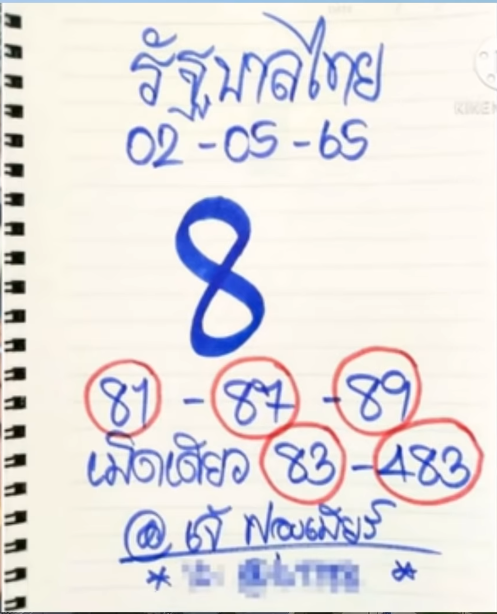 รัฐบาลไทย
02-05-65
8
81 - 87 - 89
เม็ดเดียว 83 - 483
@ เจ๊ ฟองเบียร์